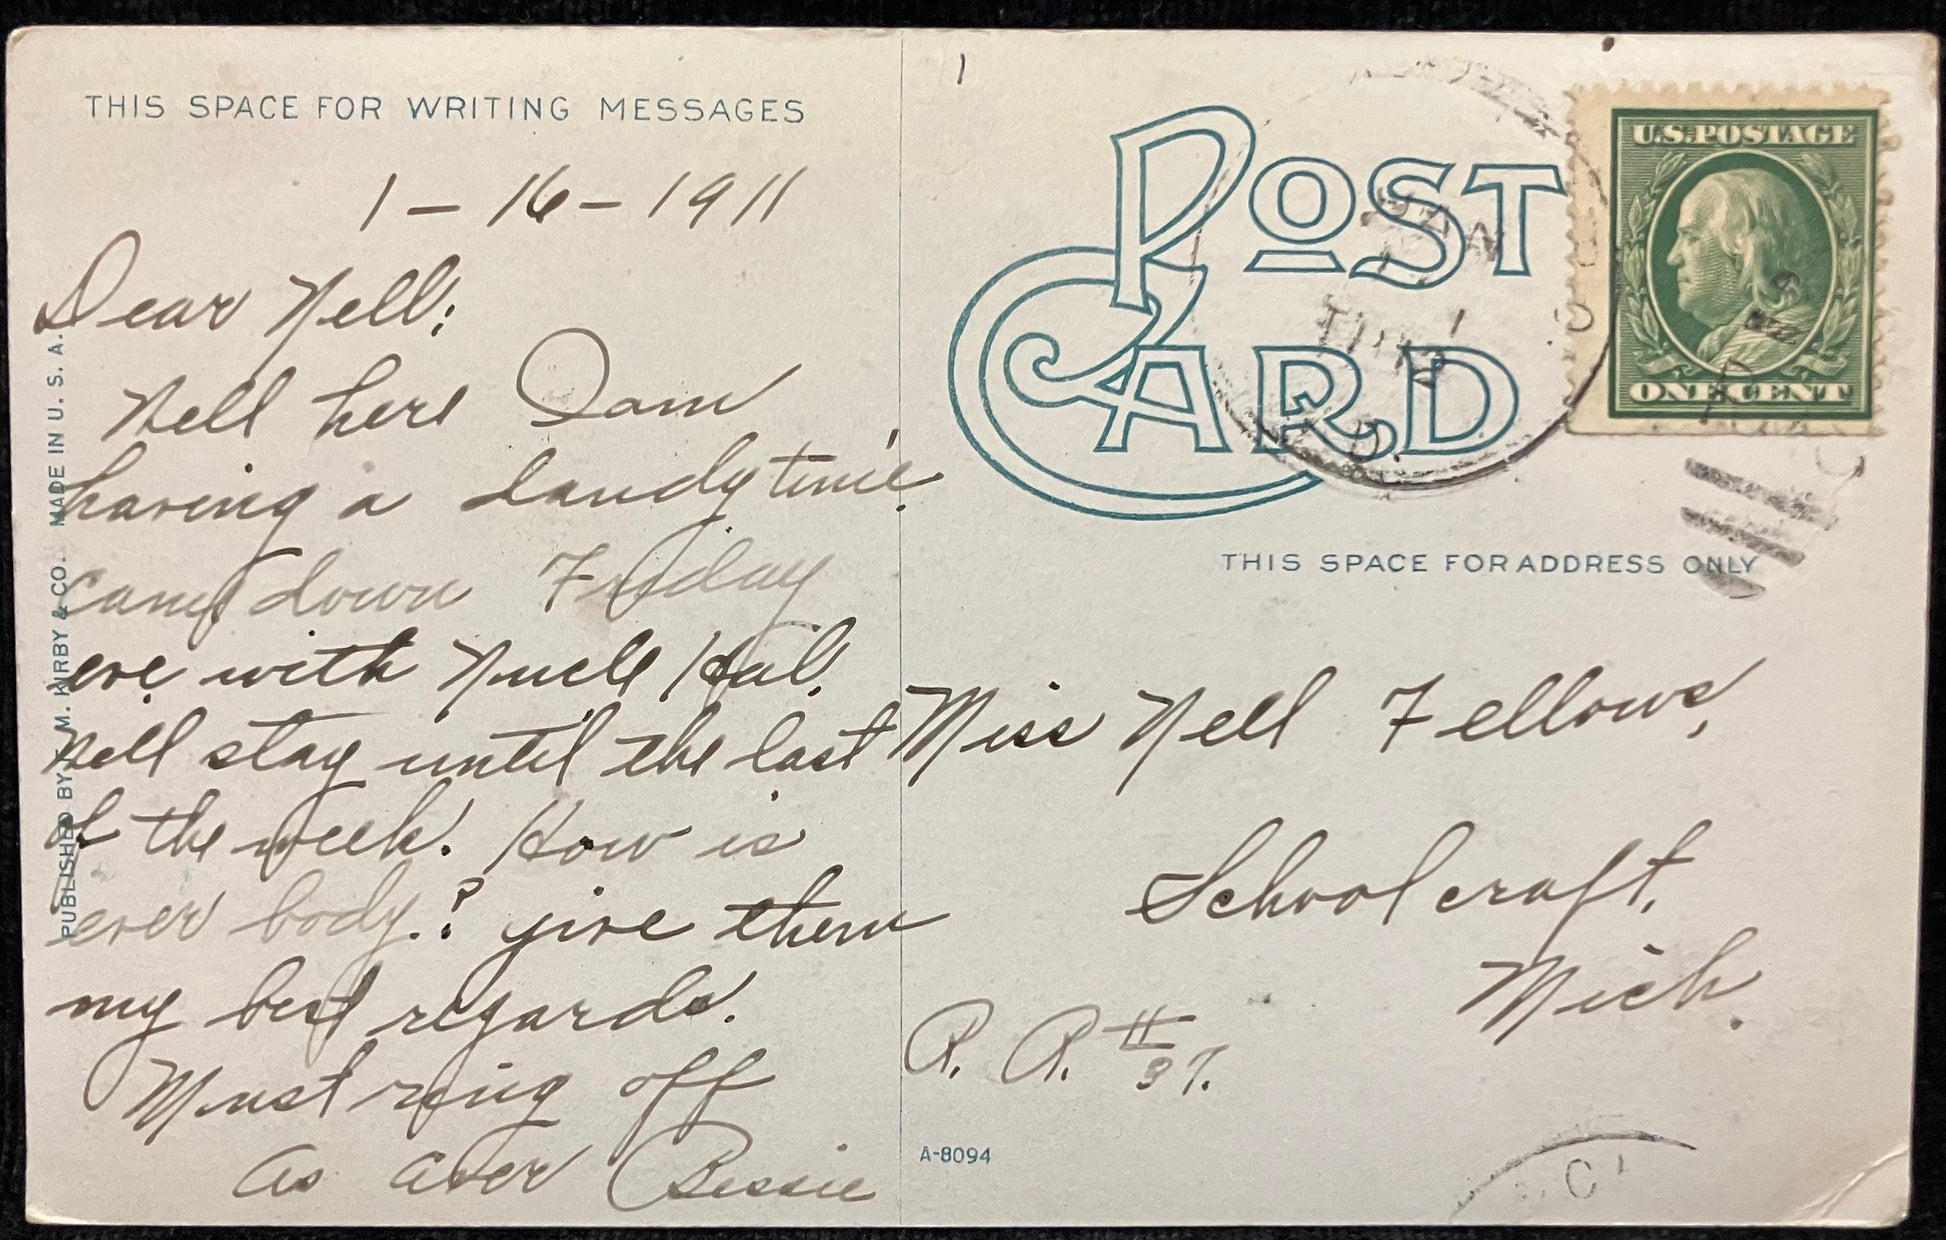 THIS SPACE FOR WRITING MESSAGES
1 - 16 - 1911
Dear Nell:
Well here I am
having a dandy time.
Came down Friday
eve with Uncle Hal.
Will stay until the last
of the week. How is
ever body.? give them
my best regards.
Must ring off
As aver Bessie
PUBLISHED BY M. KIRBY & CO. MADE IN U. S. A.
1
POST
CARD
U.S. POSTAGE
ONE CENT
JAN
THIS SPACE FOR ADDRESS ONLY
Miss Nell Fellows,
Schoolcraft,
Mich.
R. R. # 37.
A-8094